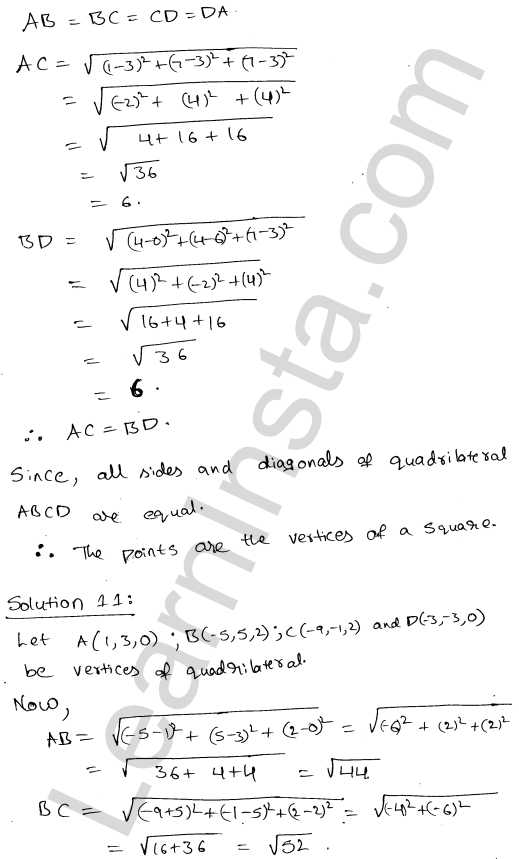 AB = BC = CD = DA.
AC = √(1-3)² + (7-3)² + (7-3)²
= √(-2)² + (4)² + (4)²
= √4 + 16 + 16
= √36
= 6.
BD = √(4-0)² + (4-6)² + (7-3)²
= √(4)² + (-2)² + (4)²
= √16 + 4 + 16
= √36
= 6.
∴ AC = BD.
Since, all sides and diagonals of quadrilateral
ABCD are equal.
∴ The points are the vertices of a square.
Solution 11:
Let A(1,3,0) ; B(-5,5,2) ; C(-9,-1,2) and D(-3,-3,0)
be vertices of quadrilateral.
Now,
AB = √(-5-1)² + (5-3)² + (2-0)² = √(-6)² + (2)² + (2)²
= √36 + 4 + 4 = √44
BC = √(-9+5)² + (-1-5)² + (2-2)² = √(-4)² + (-6)²
= √16 + 36 = √52.
LearnInsta.com